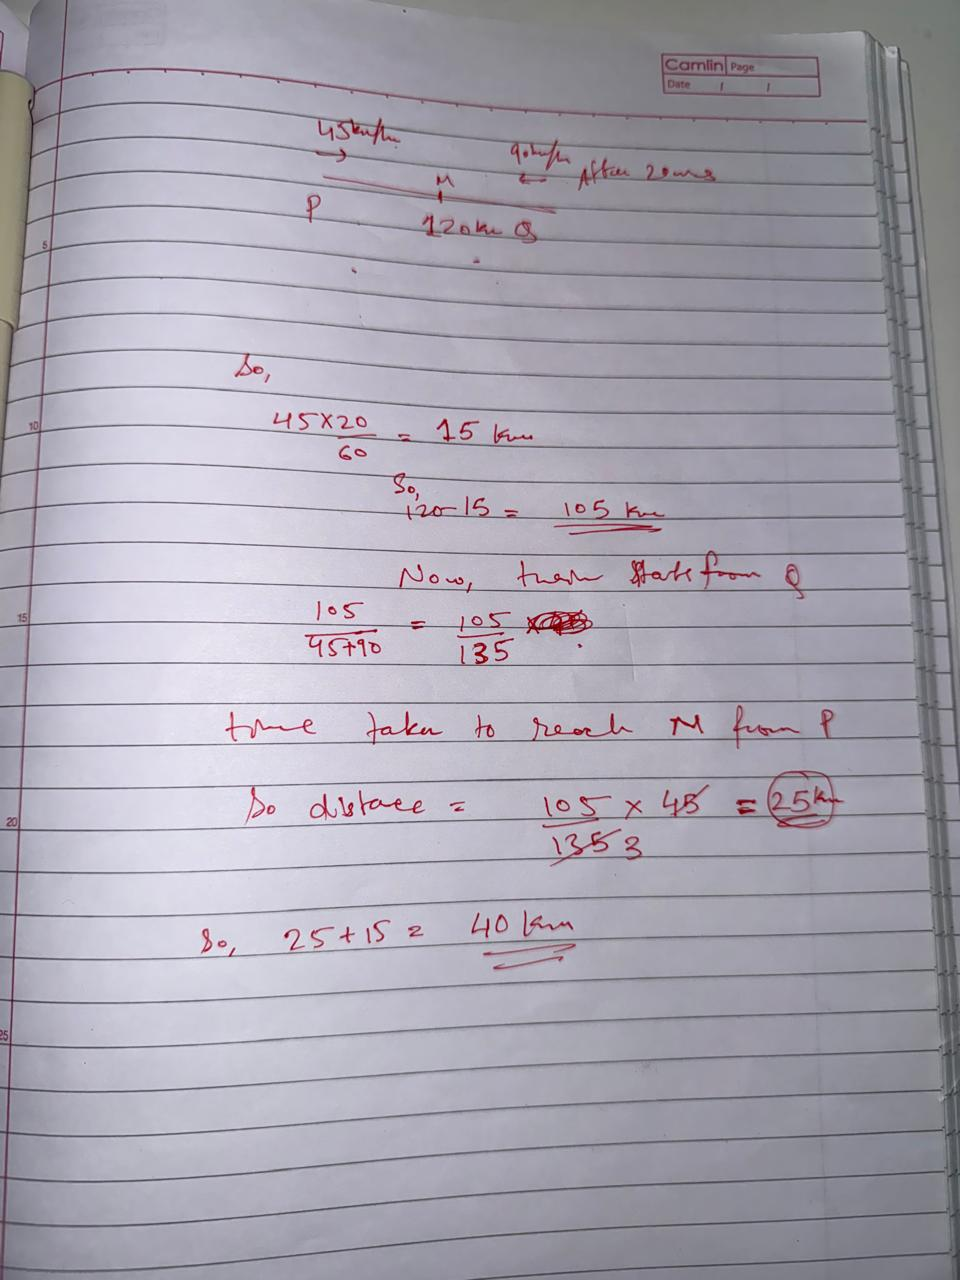 Camlin Page
Date / /
45km/hr
90km/hr After 20mns
M
P
120km Q
5
So,
10
45×20/60 = 15 km
So,
120-15 = 105 km
Now, train starts from Q
15
105/45+90 = 105/135
time taken to reach M from P
20
So distace = 105/135 3 × 45 = 25km
So, 25+15 = 40 km
25